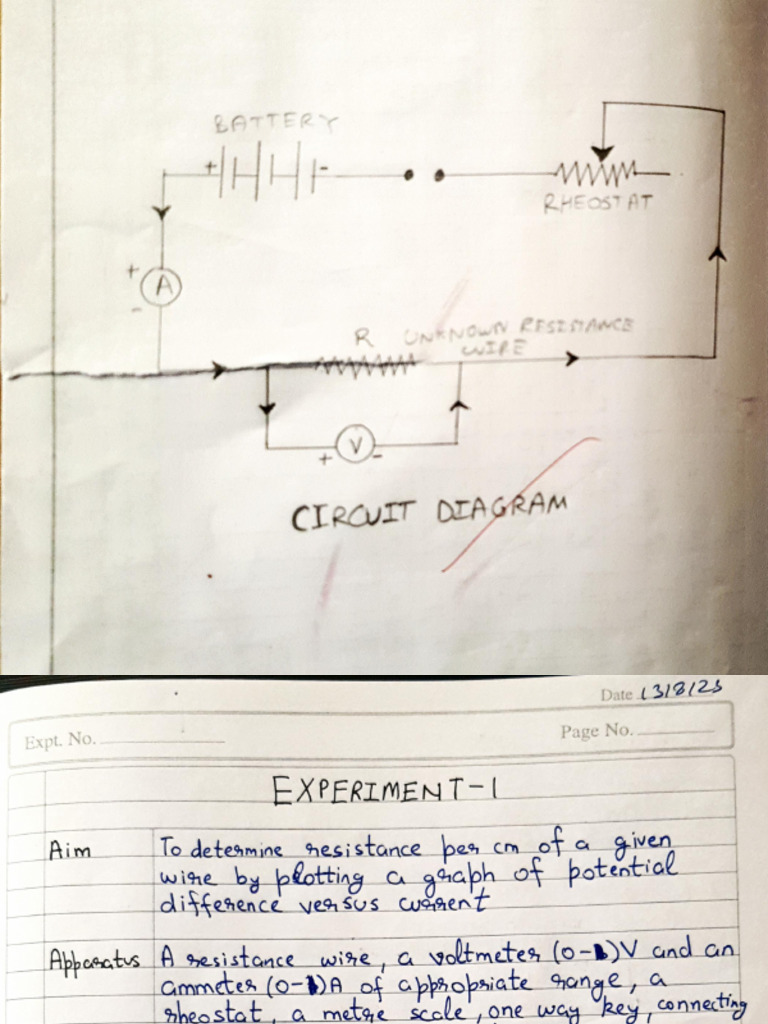 BATTERY
+ -
RHEOSTAT
+
A
-
R UNKNOWN RESISTANCE
WIRE
+ V -
CIRCUIT DIAGRAM
Date 13/8/23
Expt. No.
Page No.
EXPERIMENT-1
Aim To determine resistance per cm of a given
wire by plotting a graph of potential
difference versus current
Apparatus A resistance wire, a voltmeter (0-1)V and an
ammeter (0-1)A of appropriate range, a
rheostat, a metre scale, one way key, connecting